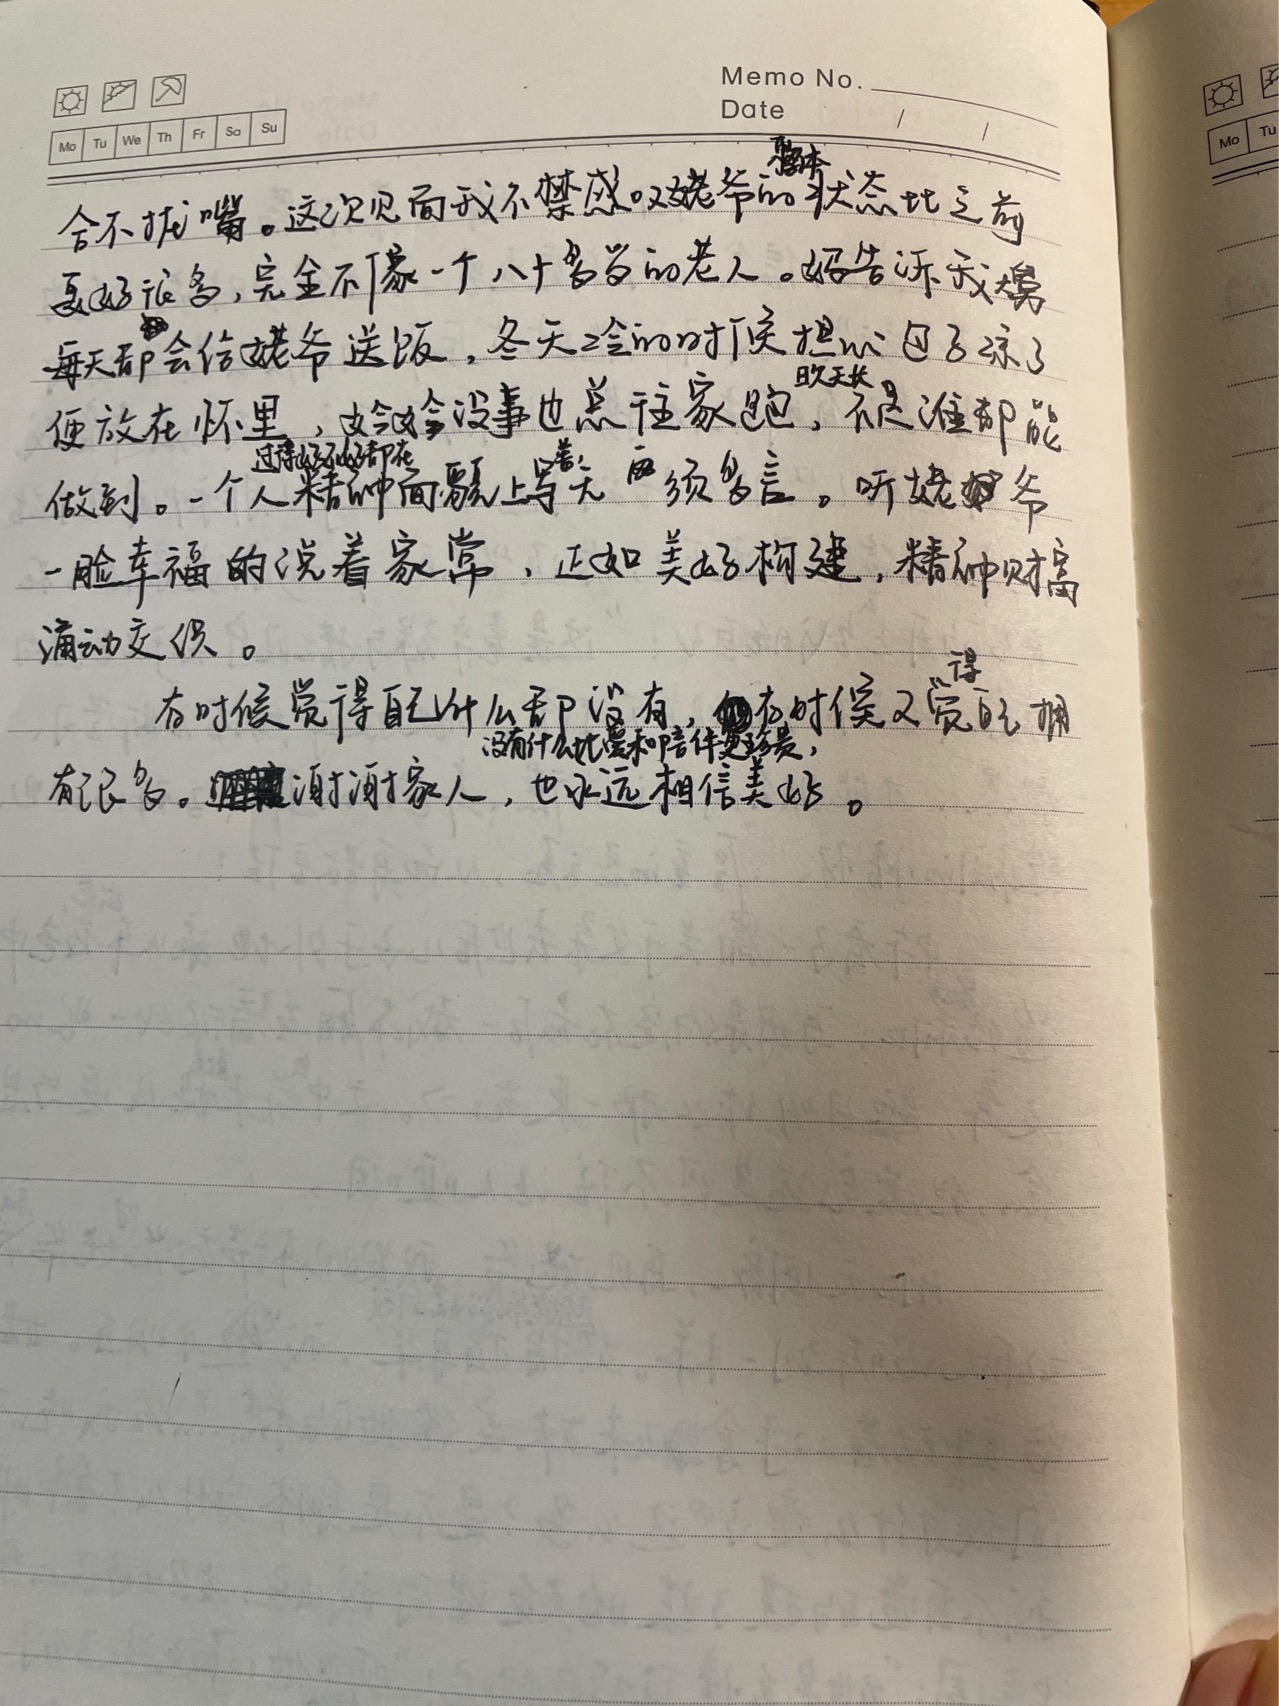 Memo No.
Date / /
Mo Tu We Th Fr Sa Su
Mo Tu
合不拢嘴。这次见面我不禁感叹姥爷的状态比之前
更好很多，完全不像一个八十多岁的老人。妈告诉我大舅
每天都会给姥爷送饭，冬天冷的时候担心包子凉了
日久天长
便放在怀里，妗妗没事也总往家跑，不是谁都能
过得好不好都在
做到。一个人精神面貌上写着无须多言。听姥爷
一脸幸福的说着家常，正如美好构建，精神财富
涌动交织。
得
有时候觉得自己什么都没有，有时候又觉自己拥
没有什么比爱和陪伴更珍贵，
有很多。谢谢家人，也永远相信美好。